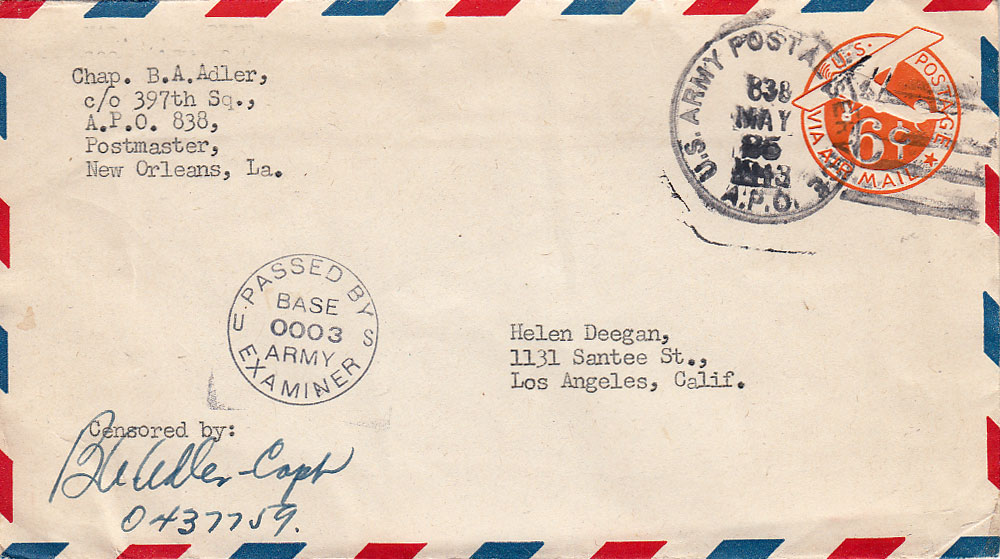 Chap. B.A.Adler,
c/o 397th Sq.,
A.P.O. 838,
Postmaster,
New Orleans, La.
U.S. ARMY POSTAL
838
MAY
A.P.O.
U.S. POSTAGE
6¢
VIA AIR MAIL
U.S. PASSED BY
BASE
0003
ARMY
EXAMINER
Helen Deegan,
1131 Santee St.,
Los Angeles, Calif.
Censored by:
B A Adler-Capt
0437759.